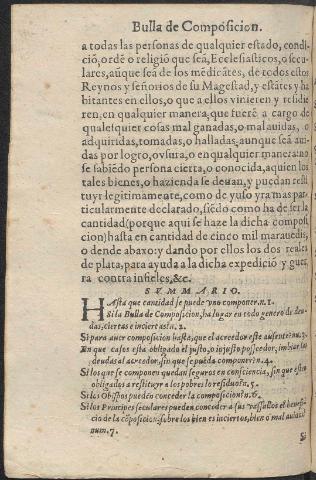 Bulla de Composicion.
a todas las personas de qualquier estado, condi-
ciõ, ordẽ o religiõ que seã, Ecclesiasticos, o secu-
lares, aũque seã de los mẽdicãtes, de todos estos
Reynos y señorios de su Magestad, y estãtes y ha
bitantes en ellos, o que a ellos vinieren y residie
ren, en qualquier manera, que fuerẽ a cargo de
qualesquier cosas mal ganadas, o mal auidas, o
adquiridas, tomadas, o halladas, aunque seã aui-
das por logro, o vsura, o en qualquier manera, no
se sabiẽdo persona cierta, o conocida, a quien los
tales bienes, o hazienda se deuan, y puedan resti
tuyr legitimamente, como de yuso yra mas par-
ticularmente declarado, siẽdo como ha de ser la
cantidad (porque aqui se haze la dicha composi
cion) hasta en cantidad de cinco mil marauedis,
o dende abaxo: y dando por ellos los dos reales
de plata, para ayuda a la dicha expediciõ y guer
ra contra infieles, &c.
SVMMARIO.
HAsta que cantidad se puede vno componer. n. 1.
Si la Bulla de Composicion, ha lugar en todo genero de deu-
das, ciertas e inciertas. n. 2.
Si para auer composicion hasta, que el acreedor este ausente? nu. 3.
En que casos esta obligado el justo, o injusto posseedor, imbiar las
deudas al acreedor, sin que se pueda componer? n. 4.
Si los que se componen quedan seguros en consciencia, sin que esten
obligados a restituyr a los pobres lo residuo? n. 5.
Si los Obispos pueden conceder la composicion? n. 6.
Si los Principes seculares pueden conceder a sus vassallos el benefi-
cio de la cõposicion, sobre los bienes inciertos, bien o mal auidos?
num. 7.
Si